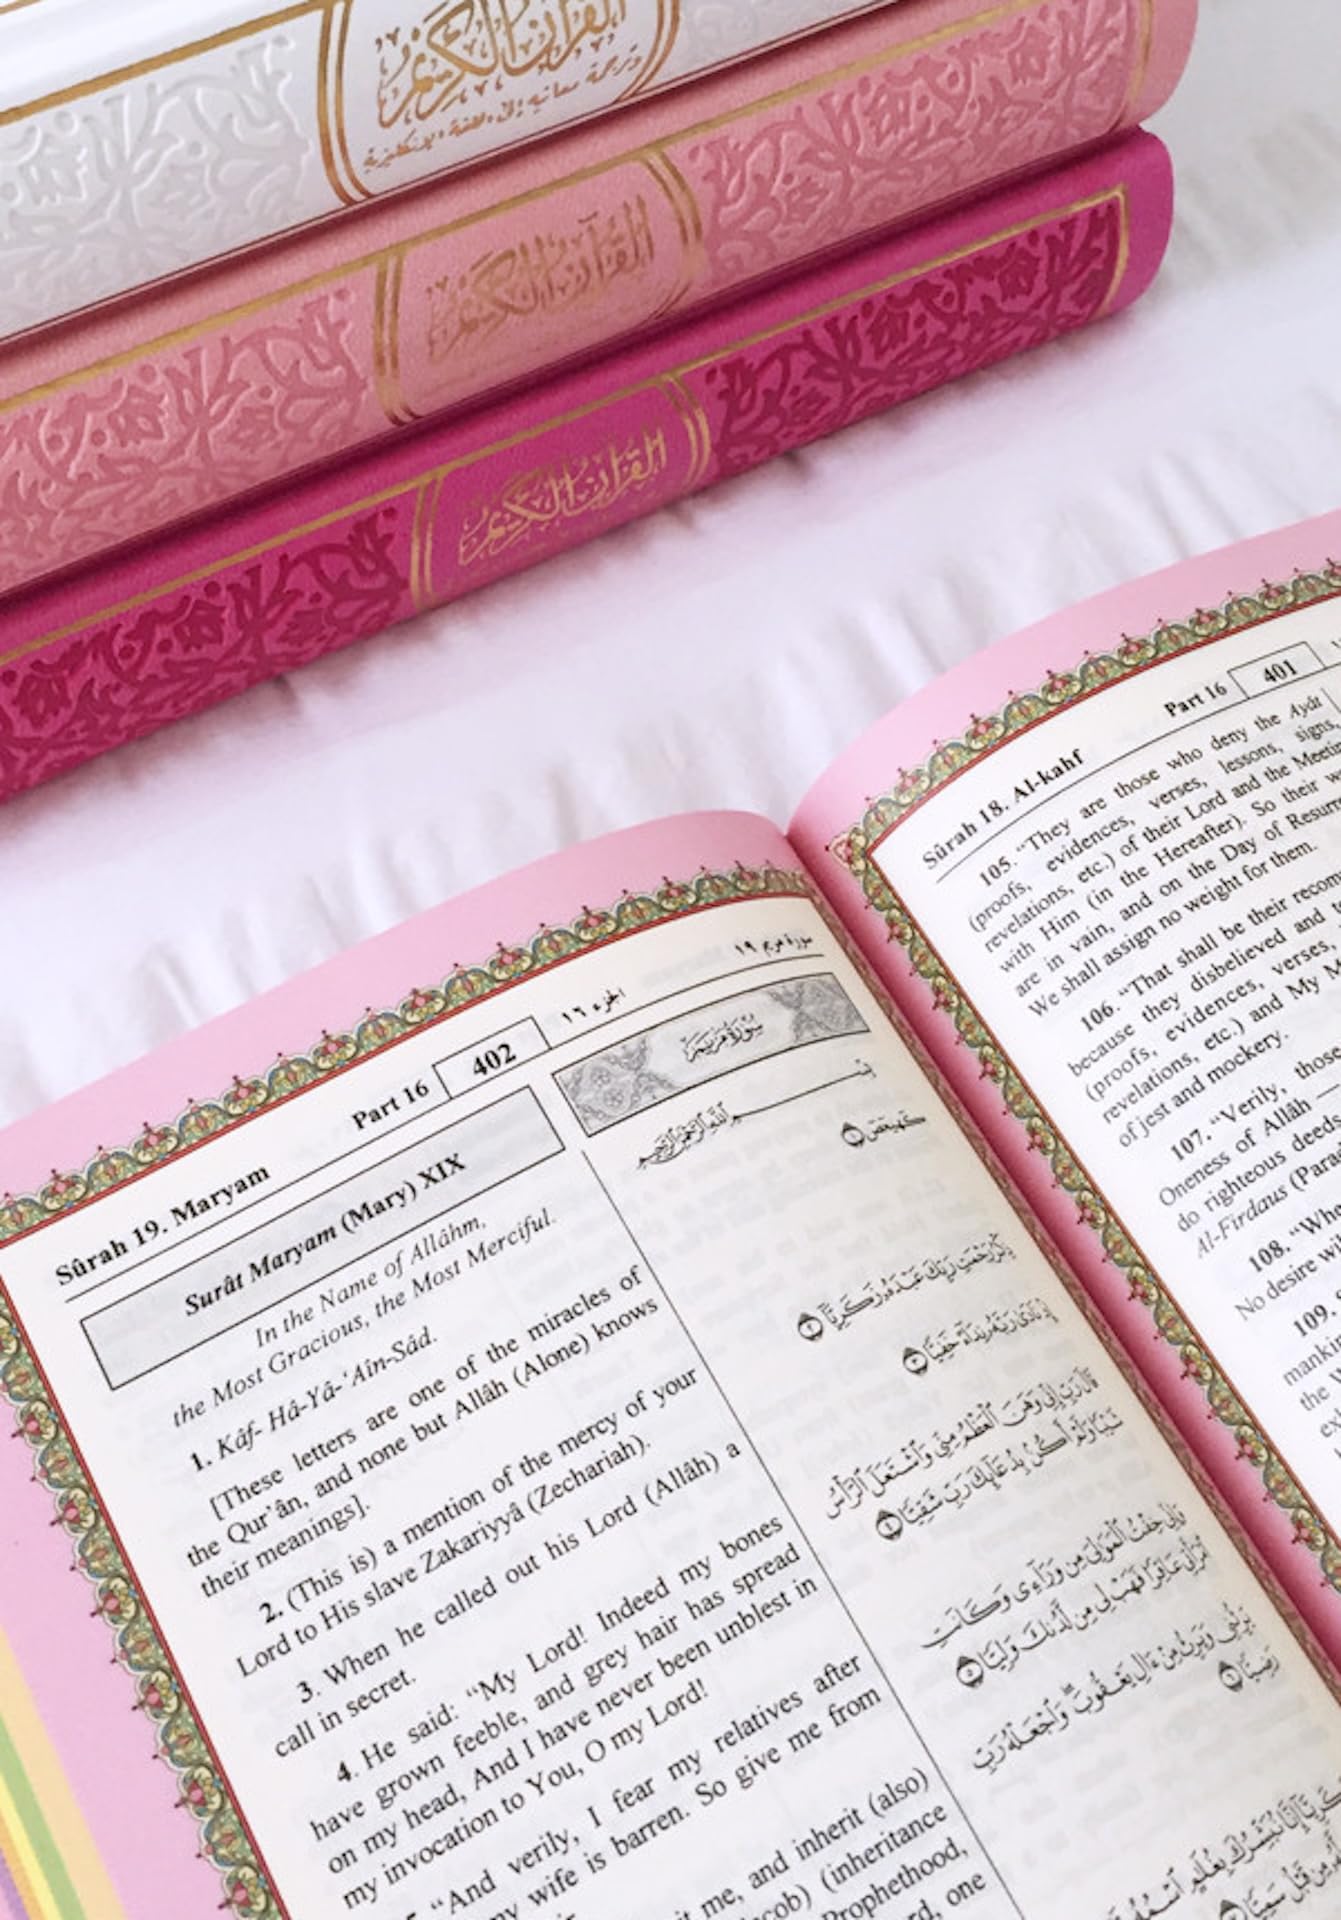 القرآن الكريم
وترجمة معانيه إلى اللغة الإنكليزية
القرآن الكريم
القرآن الكريم
Sûrah 19. Maryam
Part 16
402
الجزء ١٦
سورة مريم ١٩
Surât Maryam (Mary) XIX
In the Name of Allâhm,
the Most Gracious, the Most Merciful.
1. Kâf- Hâ-Yâ-‘Aîn-Sâd.
[These letters are one of the miracles of
the Qur’ân, and none but Allâh (Alone) knows
their meanings].
2. (This is) a mention of the mercy of your
Lord to His slave Zakariyyâ (Zechariah).
3. When he called out his Lord (Allâh) a
call in secret.
4. He said: “My Lord! Indeed my bones
have grown feeble, and grey hair has spread
on my head, And I have never been unblest in
my invocation to You, O my Lord!
“And verily, I fear my relatives after
my wife is barren. So give me from
me, and inherit (also)
(inheritance
Prophethood,
one
سورة مريم
بسم الله الرحمن الرحيم
كهيعص ١
ذكر رحمت ربك عبده زكريا ٢
إذ نادى ربه نداء خفيا ٣
قال رب إني وهن العظم مني واشتعل الرأس
شيبا ولم أكن بدعائك رب شقيا ٤
وإني خفت الموالي من وراءي وكانت
امرأتي عاقرا فهب لي من لدنك وليا ٥
يرثني ويرث من ءال يعقوب واجعله رب
رضيا ٦
إنا نبشرك بغلام اسمه
من قبل سميا
Sûrah 18. Al-kahf
Part 16
401
105. “They are those who deny the Ayât
(proofs, evidences, verses, lessons, signs,
revelations, etc.) of their Lord and the
with Him (in the Hereafter). So their
are in vain, and on the Day of
We shall assign no weight for them.
106. “That shall be their
because they disbelieved and
(proofs, evidences, verses,
revelations, etc.) and My
of jest and mockery.
107. “Verily, those
Oneness of Allâh —
do righteous deeds
Al-Firdaus
108.
No desire
109.
the